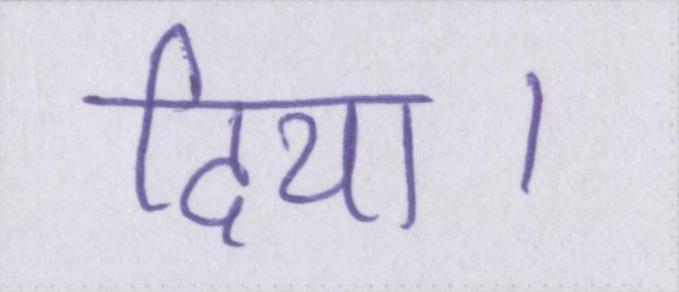 दिया।